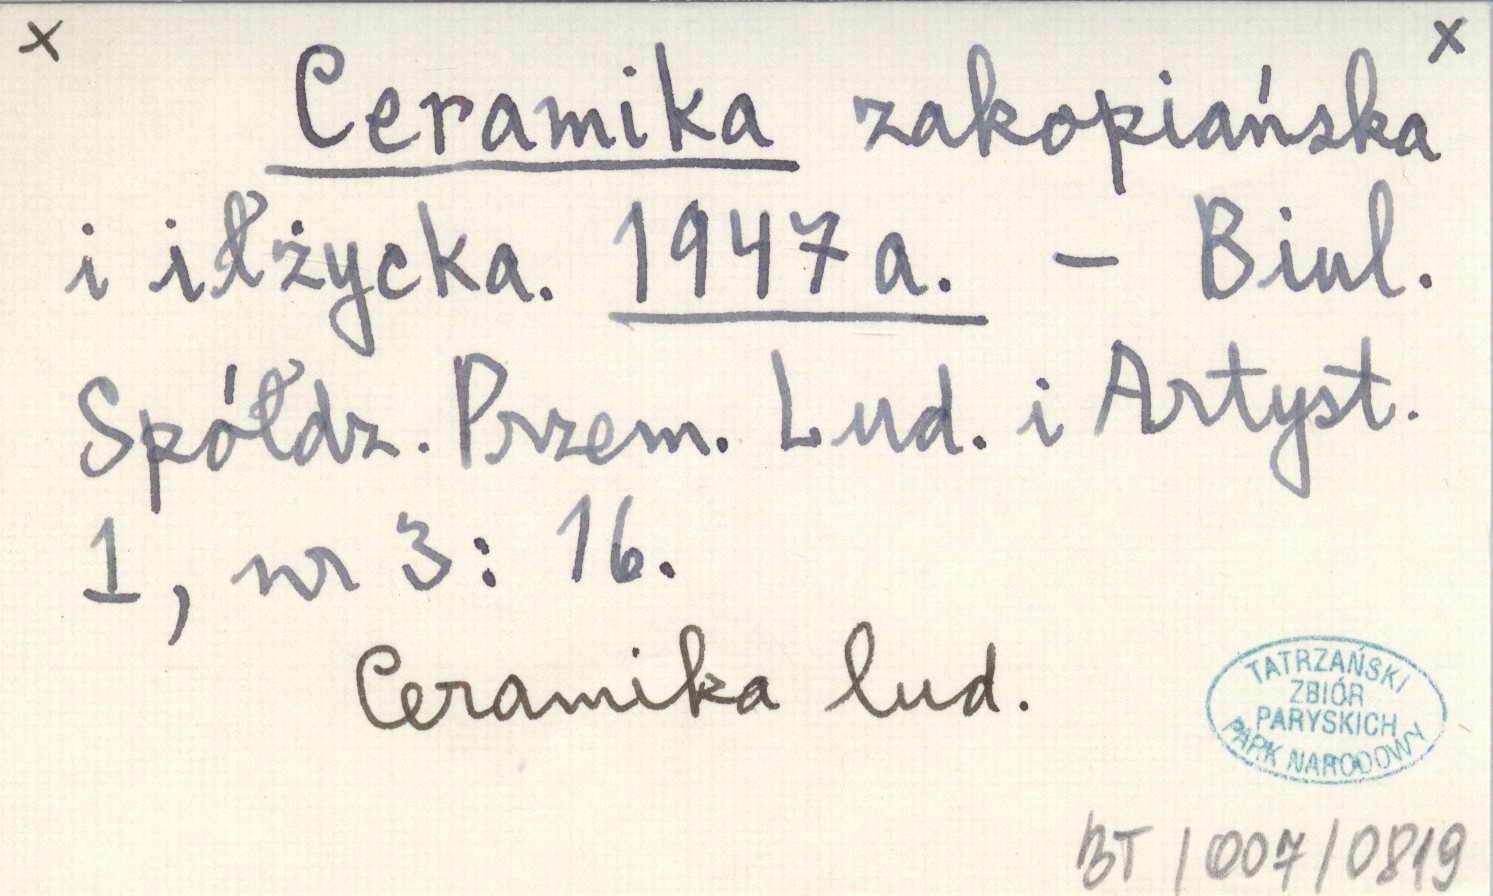 x x
Ceramika zakopiańska
i iłżycka. 1947a. – Biul.
Spółdz. Przem. Lud. i Artyst.
1, nr 3: 16.
Ceramika lud.
TATRZAŃSKI
ZBIÓR
PARYSKICH
PARK NARODOWY
BT/007/0819